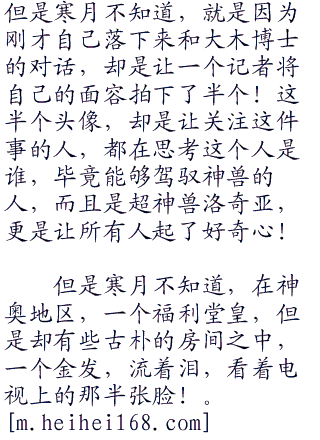 但是寒月不知道，就是因为
刚才自己落下来和大木博士
的对话，却是让一个记者将
自己的面容拍下了半个！这
半个头像，却是让关注这件
事的人，都在思考这个人是
谁，毕竟能够驾驭神兽的
人，而且是超神兽洛奇亚，
更是让所有人起了好奇心！
但是寒月不知道，在神
奥地区，一个福利堂皇，但
是却有些古朴的房间之中，
一个金发，流着泪，看着电
视上的那半张脸！。
[m.heihei168.com]